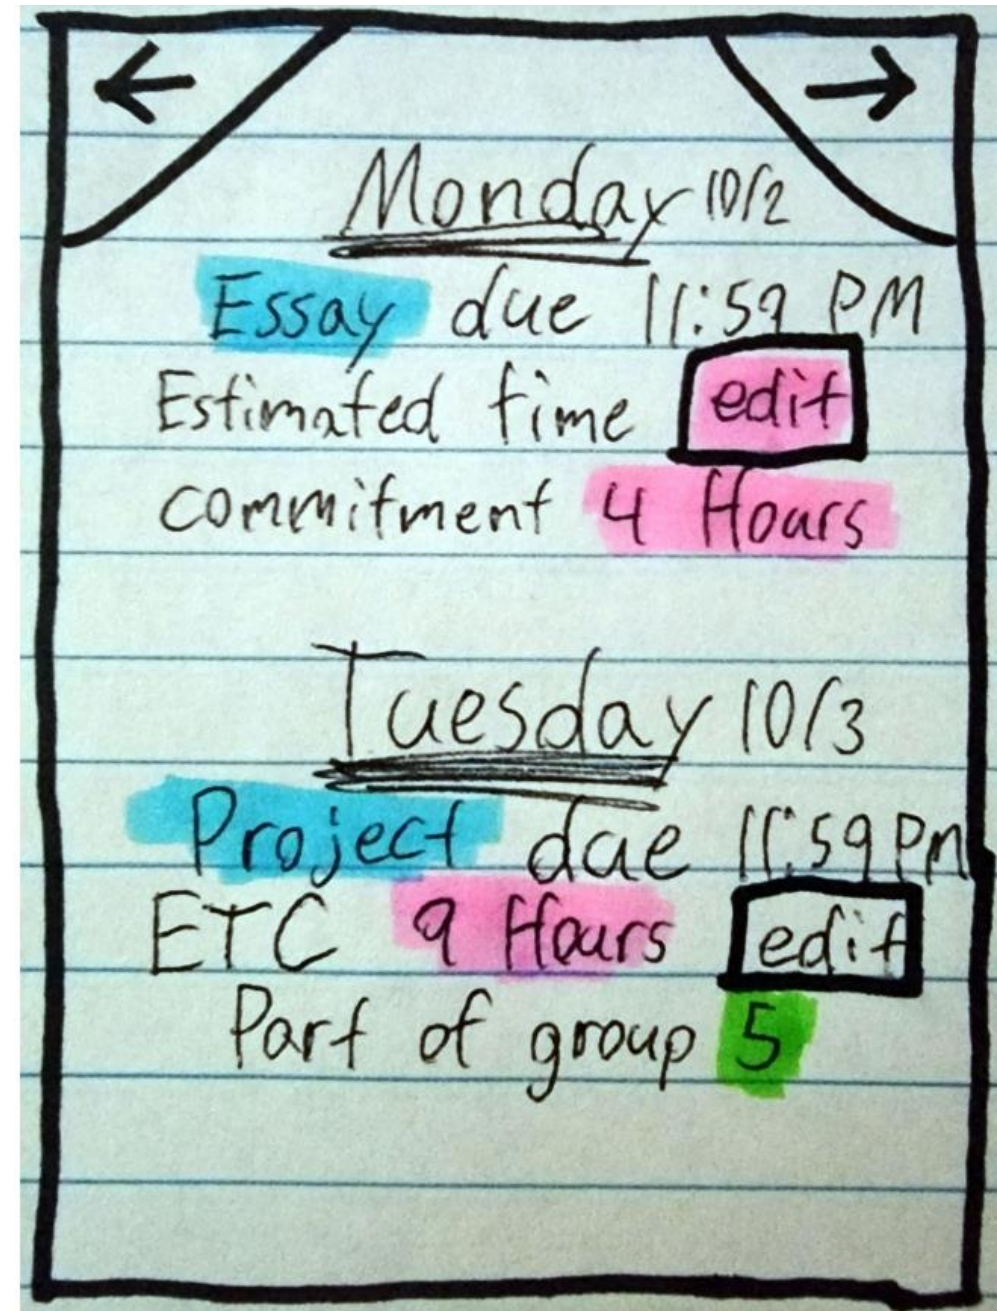 ← →
Monday 10/2
Essay due 11:59 PM
Estimated time edit
commitment 4 Hours
Tuesday 10/3
Project due 11:59 PM
ETC 9 Hours edit
Part of group 5